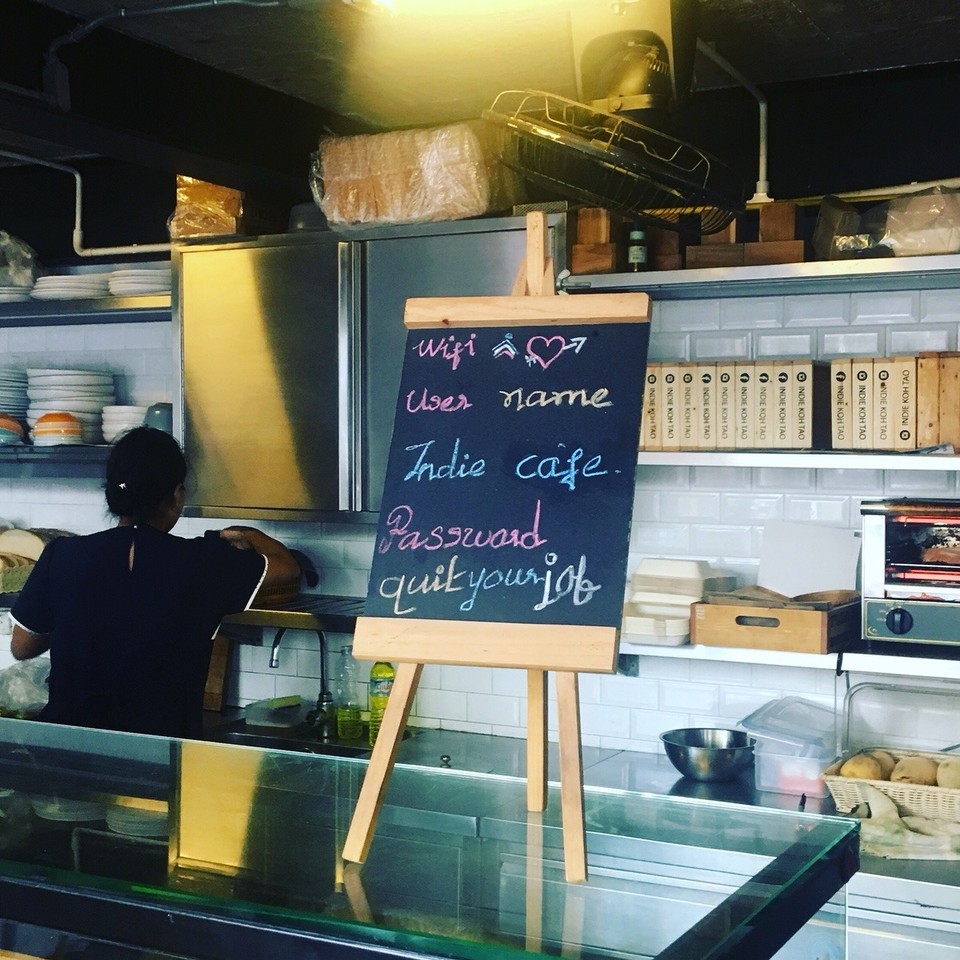 Wifi
User name
Indie cafe.
Password
quityourjob
INDIE KOH TAO
INDIE KOH TAO
INDIE KOH TAO
INDIE KOH TAO
INDIE KOH TAO
INDIE KOH TAO
INDIE KOH TAO
INDIE KOH TAO
INDIE KOH TAO
INDIE KOH TAO
INDIE KOH TAO
INDIE KOH TAO